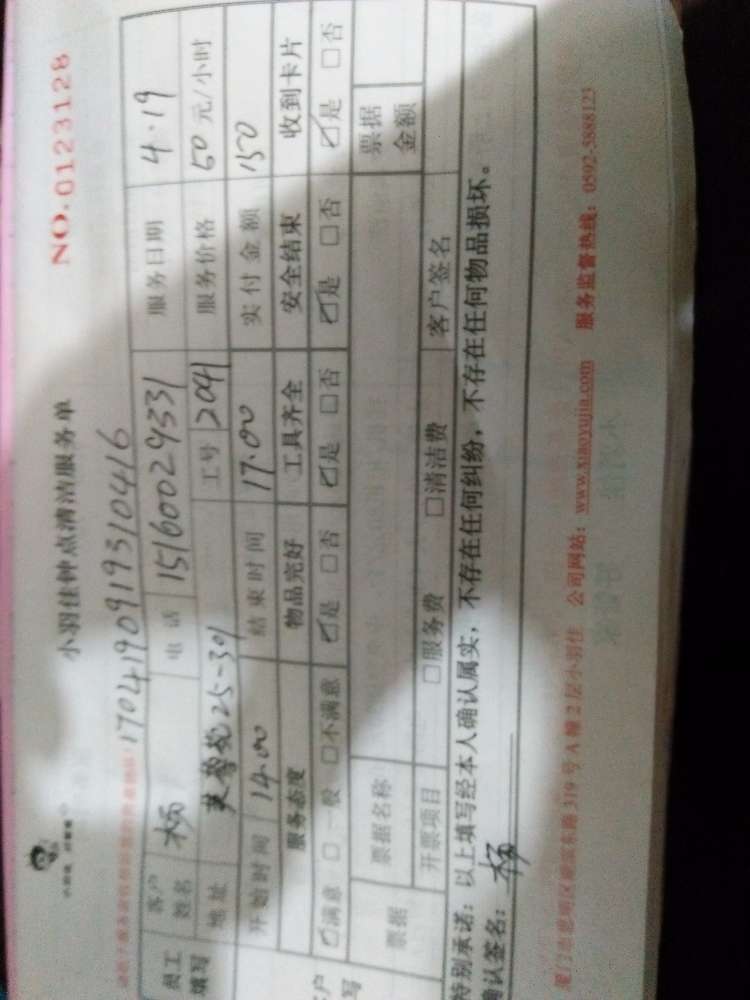 小羽佳钟点清洁服务单
NO.0123128
170419091931 0416
员工填写
客户姓名 杨 电话 15160029331 服务日期 4.19
地址 芙蓉苑25-301 工号 2041 服务价格 50元/小时
开始时间 14.00 结束时间 17.00 实付金额 150
服务态度 物品完好 工具齐全 安全结束 收到卡片
☑满意 □一般 □不满意 ☑是 □否 ☑是 □否 ☑是 □否 ☑是 □否
票据 票据名称 票据金额
开票项目 □服务费 □清洁费 客户签名
特别承诺：以上填写经本人确认属实，不存在任何纠纷，不存在任何物品损坏。
确认签名：杨
厦门市思明区湖滨东路319号A幢2层小羽佳 公司网站：www.xiaoyujia.com 服务监督热线：0592-5888123